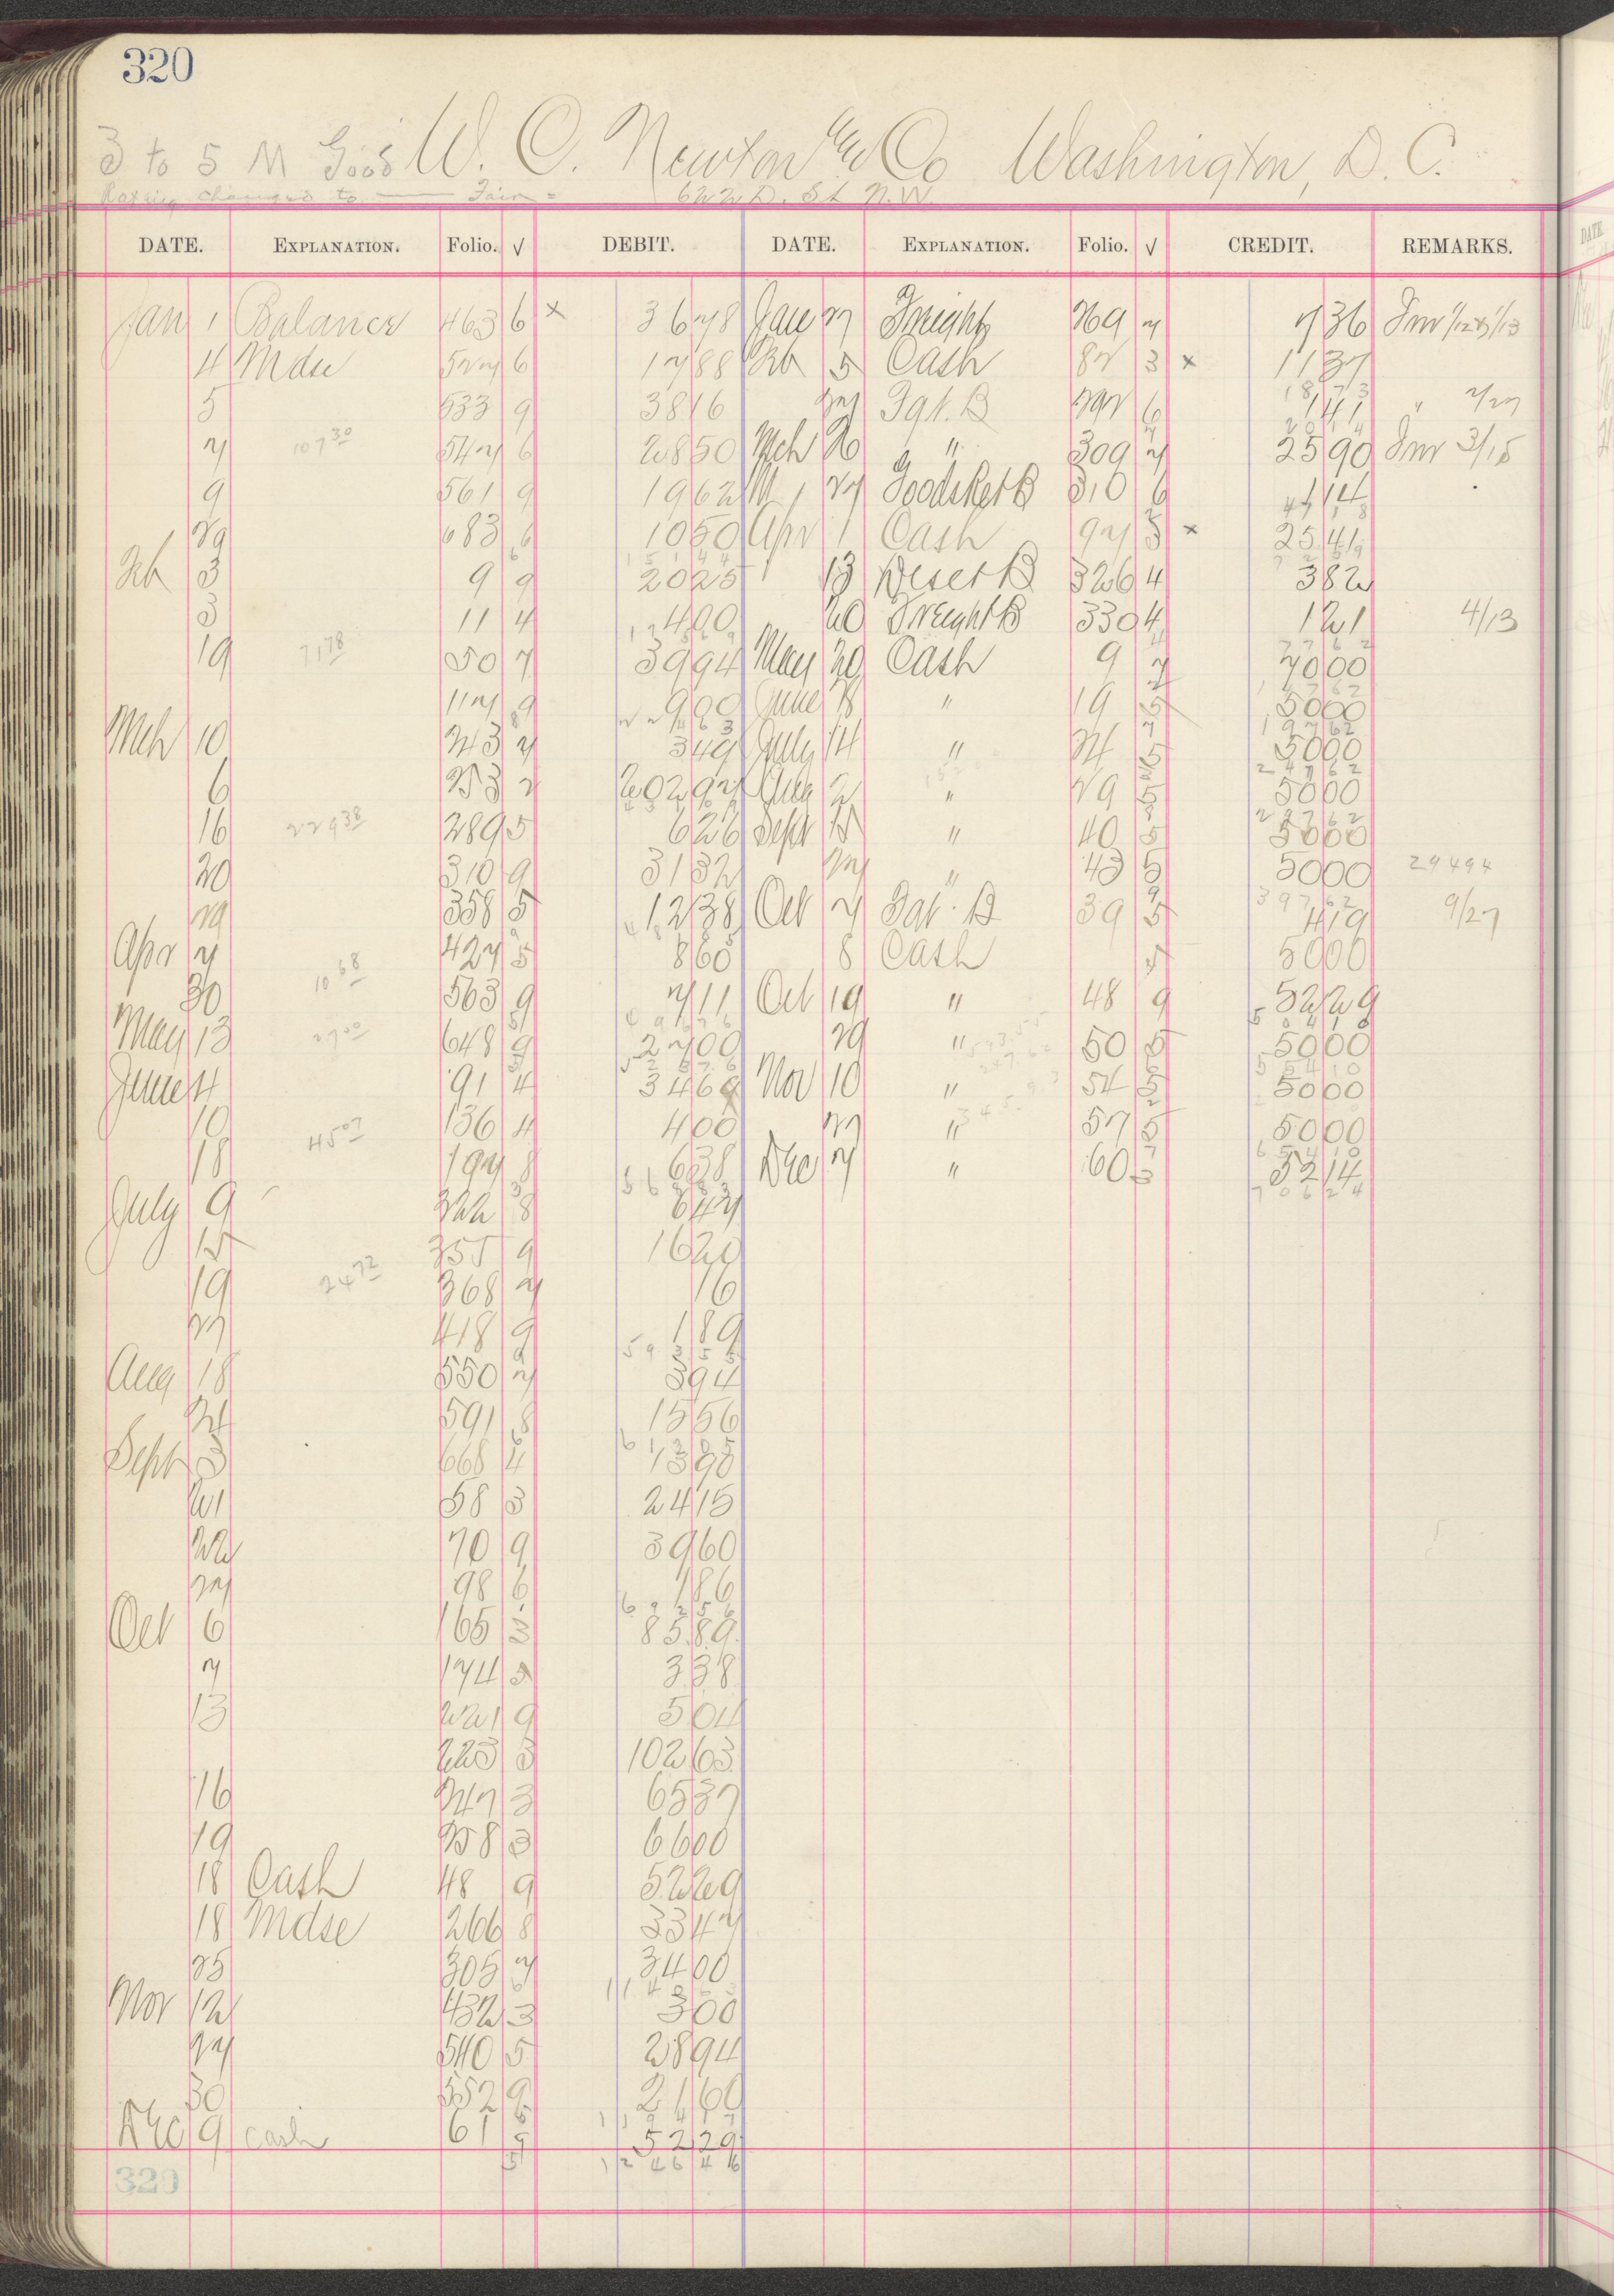 320
3 to 5 M Good W. C. Newton & Co Washington, D. C.
Rating changed to — Fair = 622 D. St N.W.
DATE. EXPLANATION. Folio. √ DEBIT. DATE. EXPLANATION. Folio. √ CREDIT. REMARKS.
Jan 1 Balance 463 6 x 36 78 Jan 27 Freight 269 7 7 36 Inv 1/12 & 1/13
4 Mdse 527 6 17 88 Feb 5 Cash 82 3 x 11 37
18 73
5 533 9 38 16 27 Fgt. B 292 6 1 41 " 2/27
20 14
7 107 30 547 6 28 50 Mch 26 " 309 7 25 90 Inv 3/15
9 561 9 19 62 27 Goods Ret B 310 6 1 14
47 18
29 683 6 10 50 Apr 1 Cash 97 5 x 25 41
151 44 72 59
Feb 3 9 9 20 25 13 Reset B 326 4 3 82
3 11 4 4 00 20 Freight B 330 4 1 21 4/13
77 62
19 71 78 50 7 39 94 May 20 Cash 9 7 70 00
147 62
117 9 9 00 June 8 " 19 5 50 00
197 62
Mch 10 243 7 3 49 July 14 " 24 5 50 00
247 62
6 253 2 202 97 Aug 2 " 29 5 50 00
297 62
16 229 38 289 5 6 26 Sept 15 " 40 5 50 00
20 310 9 31 32 27 " 43 5 50 00 294 94
397 62
29 358 5 12 38 Oct 7 Fgt. B 39 5 4 19 9/27
Apr 7 427 5 8 60 8 Cash 5 50 00
30 10 68 563 9 7 11 Oct 19 " 48 9 52 29
504 10
May 13 27 00 648 9 27 00 29 " 50 5 50 00
554 10
June 4 91 4 34 69 Nov 10 " 54 5 50 00
10 45 07 136 4 4 00 27 " 57 5 50 00
654 10
18 197 8 6 38 Dec 7 " 60 3 52 14
706 24
July 9 322 8 6 47
15 355 9 16 20
19 24 72 368 7 16
27 418 9 1 89
593 55
Aug 18 550 7 3 94
24 591 8 15 56
613 05
Sept 3 668 4 13 90
21 58 3 24 15
22 70 9 39 60
27 98 6 1 86
692 56
Oct 6 165 3 85 89
7 174 5 3 38
13 221 9 5 04
223 3 102 63
16 247 3 65 37
19 258 3 66 00
18 Cash 48 9 52 29
18 Mdse 266 8 33 47
25 305 7 34 00
Nov 12 432 3 3 00
27 540 5 28 94
30 552 9 21 60
1194 17
Dec 9 cash 61 9 52 29
1246 46
320